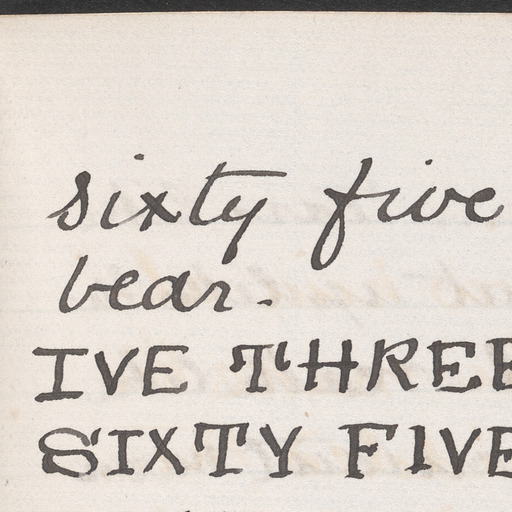 sixty five
bear.
IVE THREE
SIXTY FIVE